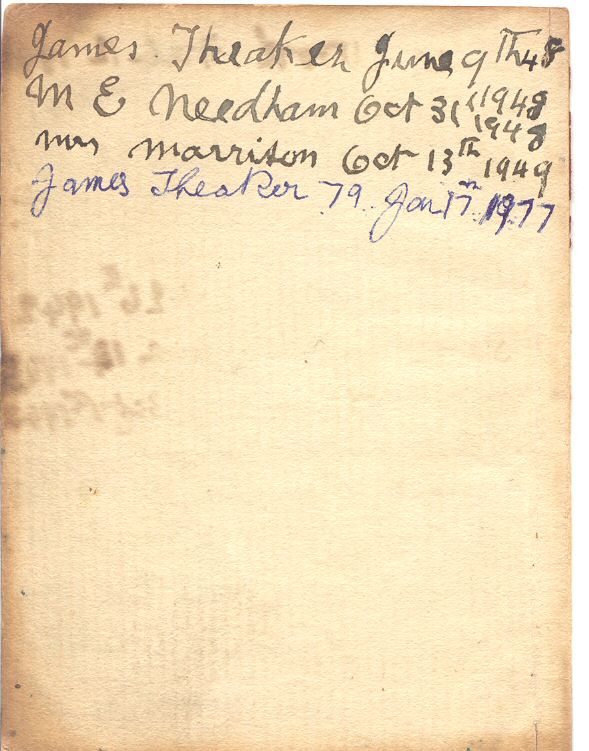 James Theaker June 9th 48
M E Needham Oct 31st 1948
1948
Mrs Marrison Oct 13th 1949
James Theaker 79 Jan 17th 1977